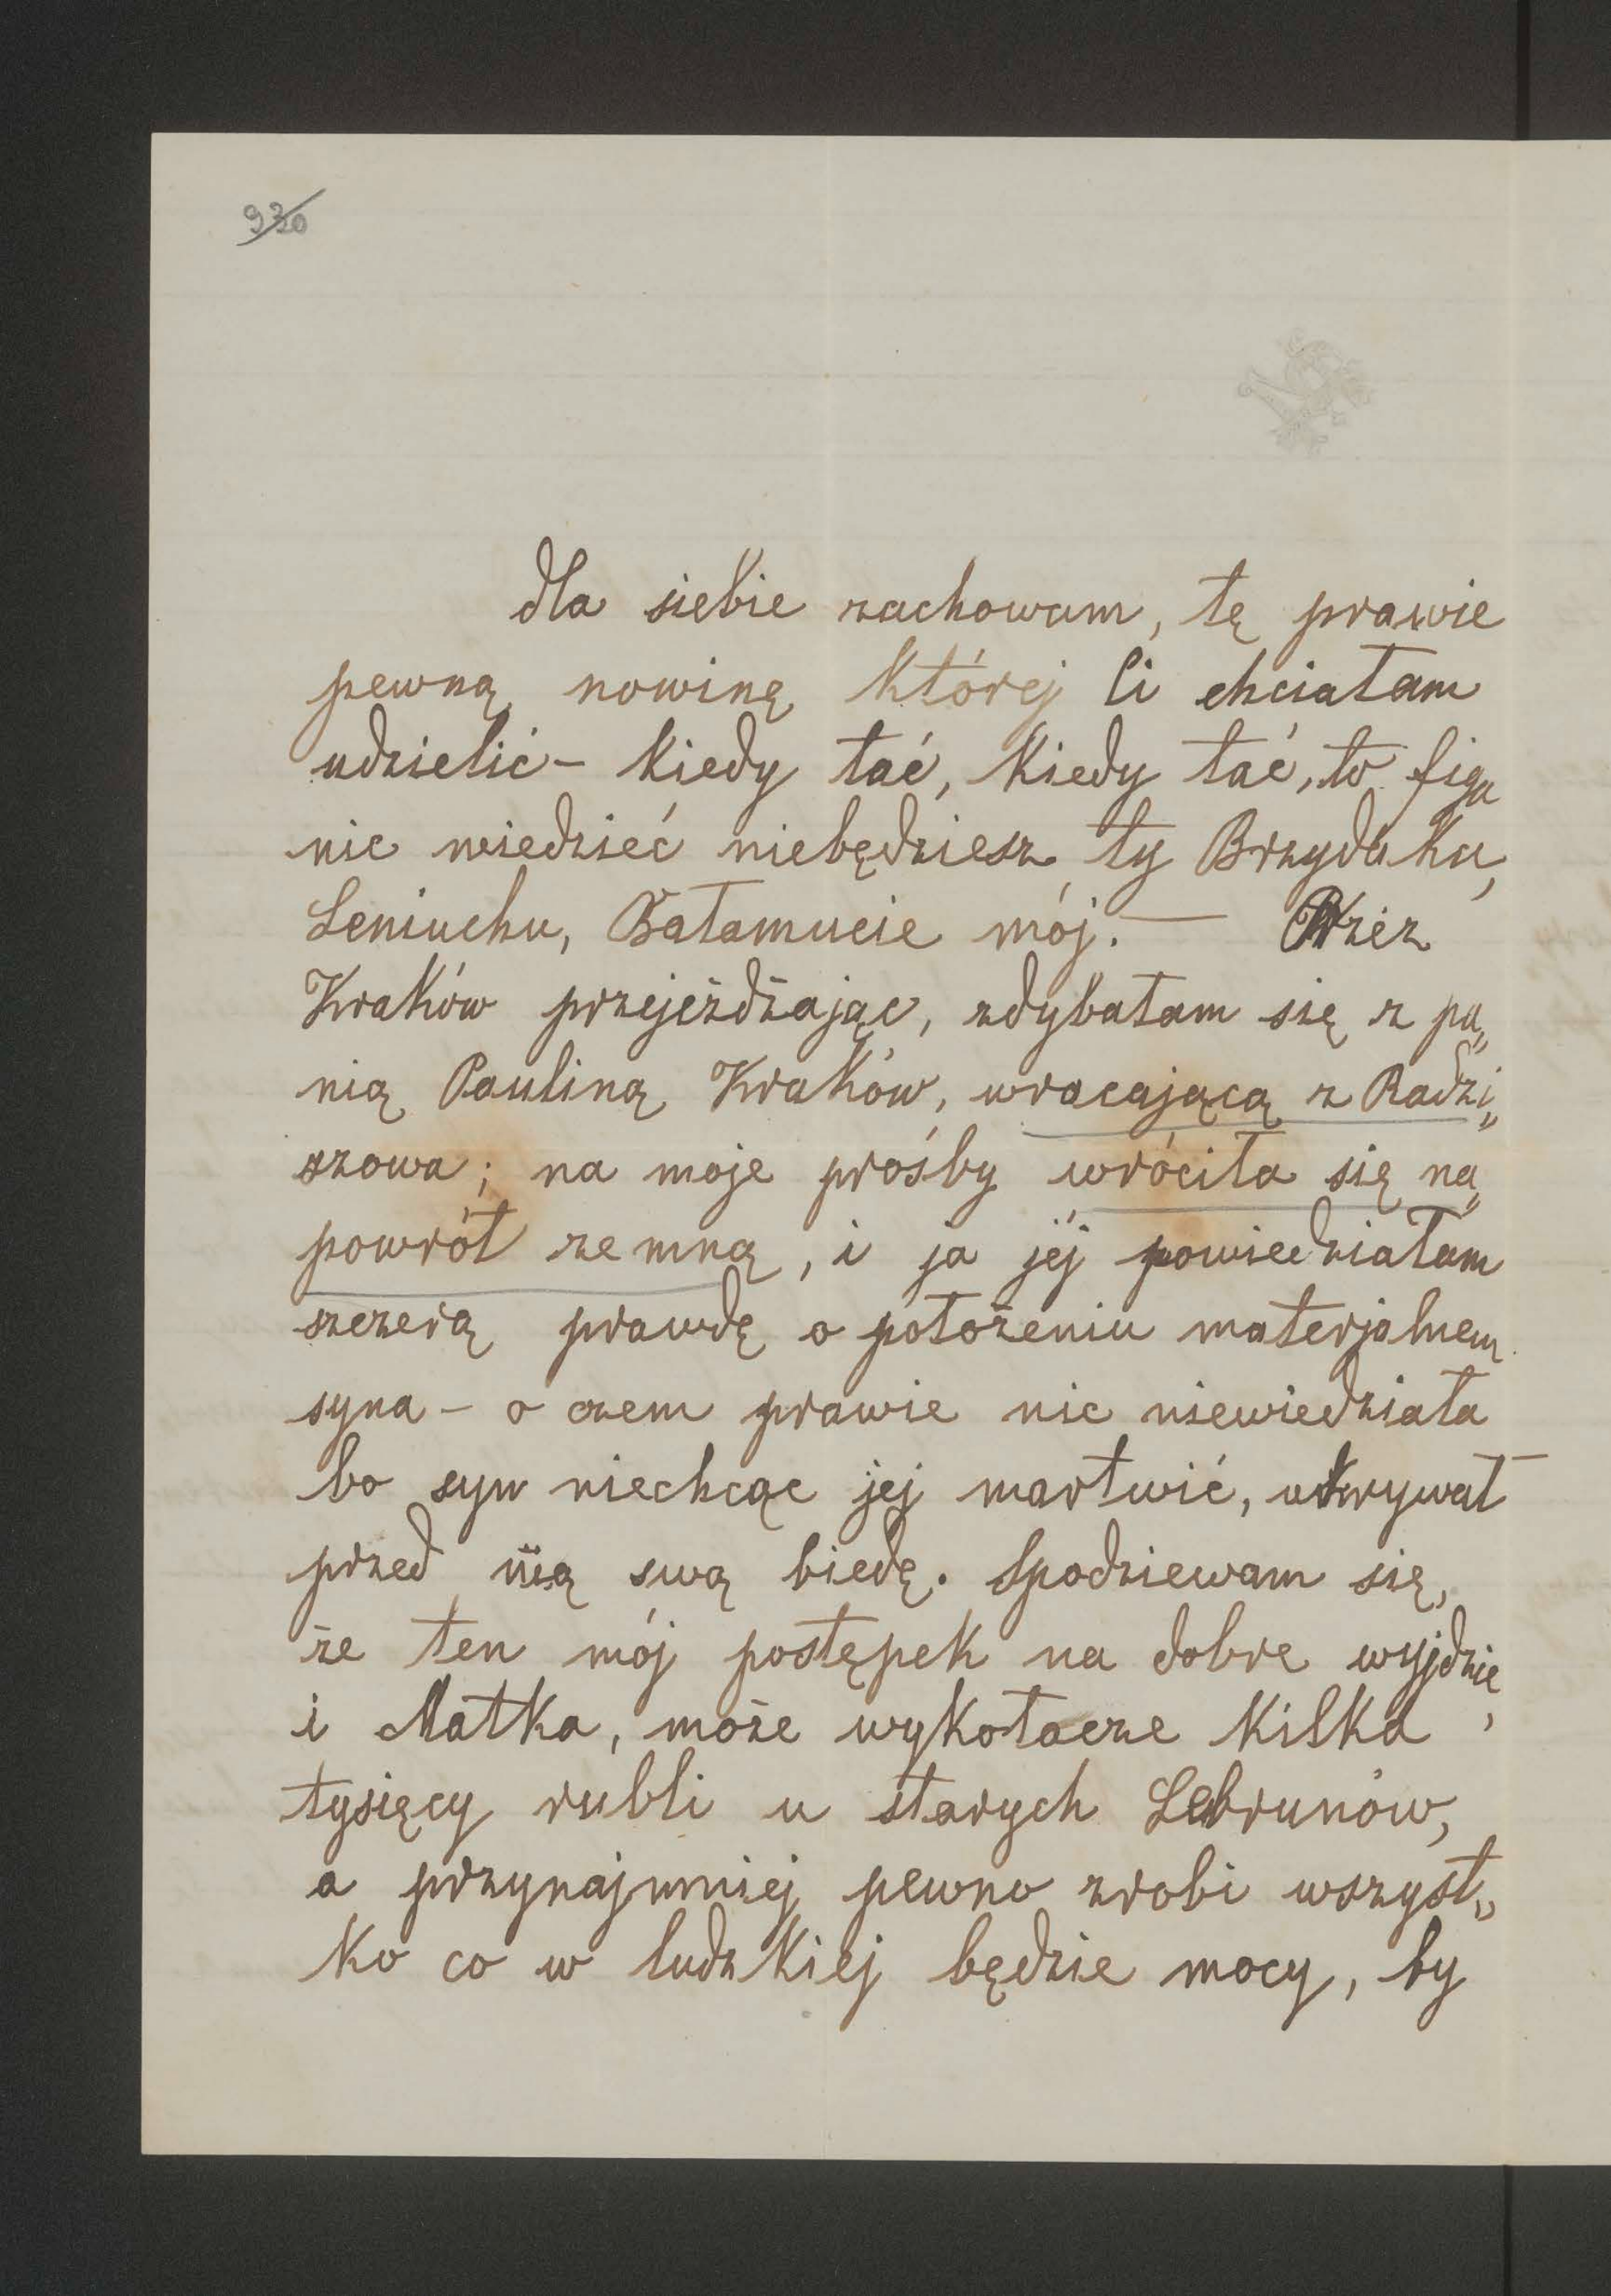 930
dla siebie zachowam, tę prawie
pewną nowinę której Ci chciałam
udzielić – kiedy łać, kiedy łać, to figa
nic wiedzieć niebędziesz ty Brzydaku,
Leniuchu, Bałamucie mój. — Przez
Kraków przejeżdżając, zdybałam się z pa„
nią Pauliną Kraków, wracającą z Radzi„
szowa; na moje prośby wróciła się na„
powrót ze mną, i ja jéj powiedziałam
szczerą prawdę o położeniu materjalnem
syna – o czem prawie nic niewiedziała
bo syn niechcąc jej martwić, ukrywał
przed nią swą biedę. Spodziewam się,
że ten mój postępek na dobre wyjdzie,
i Matka, może wykołacze kilka
tysięcy rubli u starych Lebrunów,
a przynajmniej pewno zrobi wszyst„
ko co w ludzkiej będzie mocy, by